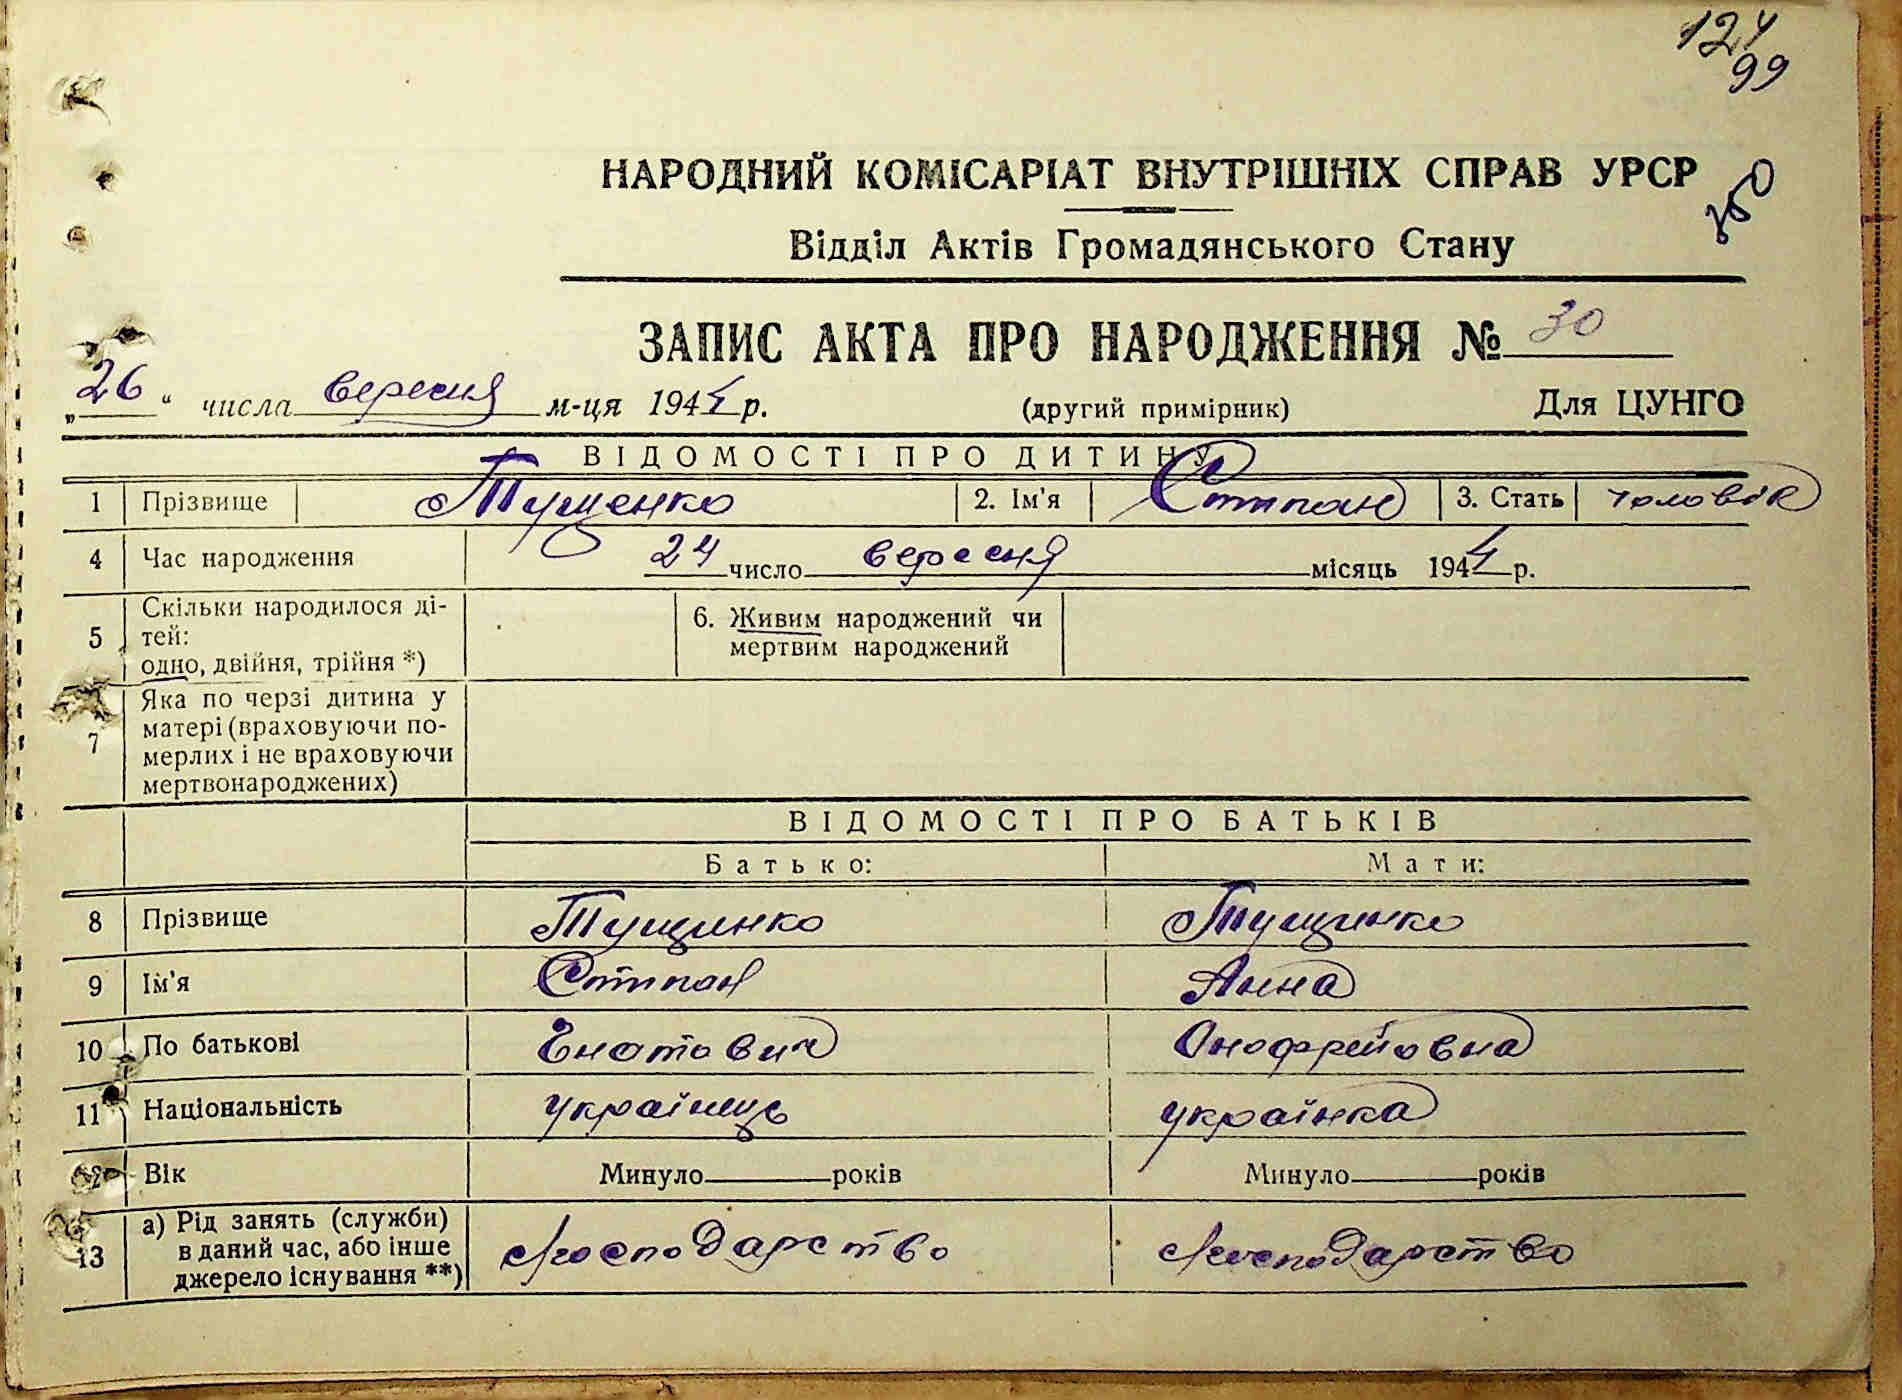 124
99
НАРОДНИЙ КОМІСАРІАТ ВНУТРІШНІХ СПРАВ УРСР
Відділ Актів Громадянського Стану
ЗАПИС АКТА ПРО НАРОДЖЕННЯ № 30
„26“ числа вересня м-ця 1944 р. (другий примірник) Для ЦУНГО
ВІДОМОСТІ ПРО ДИТИНУ
1 Прізвище Тущенко 2. Ім'я Стипан 3. Стать чоловік
4 Час народження 24 число вересня місяць 1944 р.
5 Скільки народилося ді-
тей:
одно, двійня, трійня *)
6. Живим народжений чи
мертвим народжений
7 Яка по черзі дитина у
матері (враховуючи по-
мерлих і не враховуючи
мертвонароджених)
ВІДОМОСТІ ПРО БАТЬКІВ
Батько: Мати:
8 Прізвище Тущинко Тущинко
9 Ім'я Стипан Анна
10 По батькові Гнатович Онофрейовна
11 Національність українець українка
12 Вік Минуло років Минуло років
13 а) Рід занять (служби)
в даний час, або інше
джерело існування **)
господарство господарство